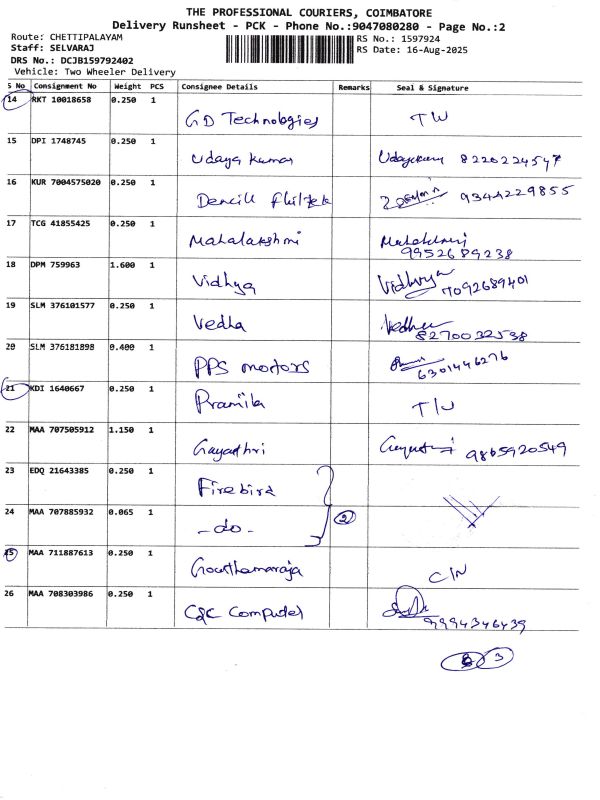 THE PROFESSIONAL COURIERS, COIMBATORE
Delivery Runsheet - PCK - Phone No.:9047080280 - Page No.:2
Route: CHETTIPALAYAM
RS No.: 1597924
Staff: SELVARAJ
RS Date: 16-Aug-2025
DRS No.: DCJB159792402
Vehicle: Two Wheeler Delivery
S No Consignment No Weight PCS Consignee Details Remarks Seal & Signature
14 RKT 10018658 0.250 1
GD Technologies T W
15 DPI 1748745 0.250 1
Udaya Kumar 8220224547
16 KUR 7004575020 0.250 1
Dencill 9344229855
17 TCG 41855425 0.250 1
Mahalakshmi
9952689238
18 DPM 759963 1.600 1
Vidhya Vidhya 7092689401
19 SLM 376101577 0.250 1
Vedha Vedha
8270032538
20 SLM 376181898 0.400 1
PPS motors 6301446276
21 KDI 1640667 0.250 1
Pramila T/W
22 MAA 707505912 1.150 1
Gayathri 9865920549
23 EDQ 21643385 0.250 1
Firebird
24 MAA 707885932 0.065 1
2
-do-
25 MAA 711887613 0.250 1
Gowthamaraja C/N
26 MAA 708303986 0.250 1
C&C Computer
9994346439
3